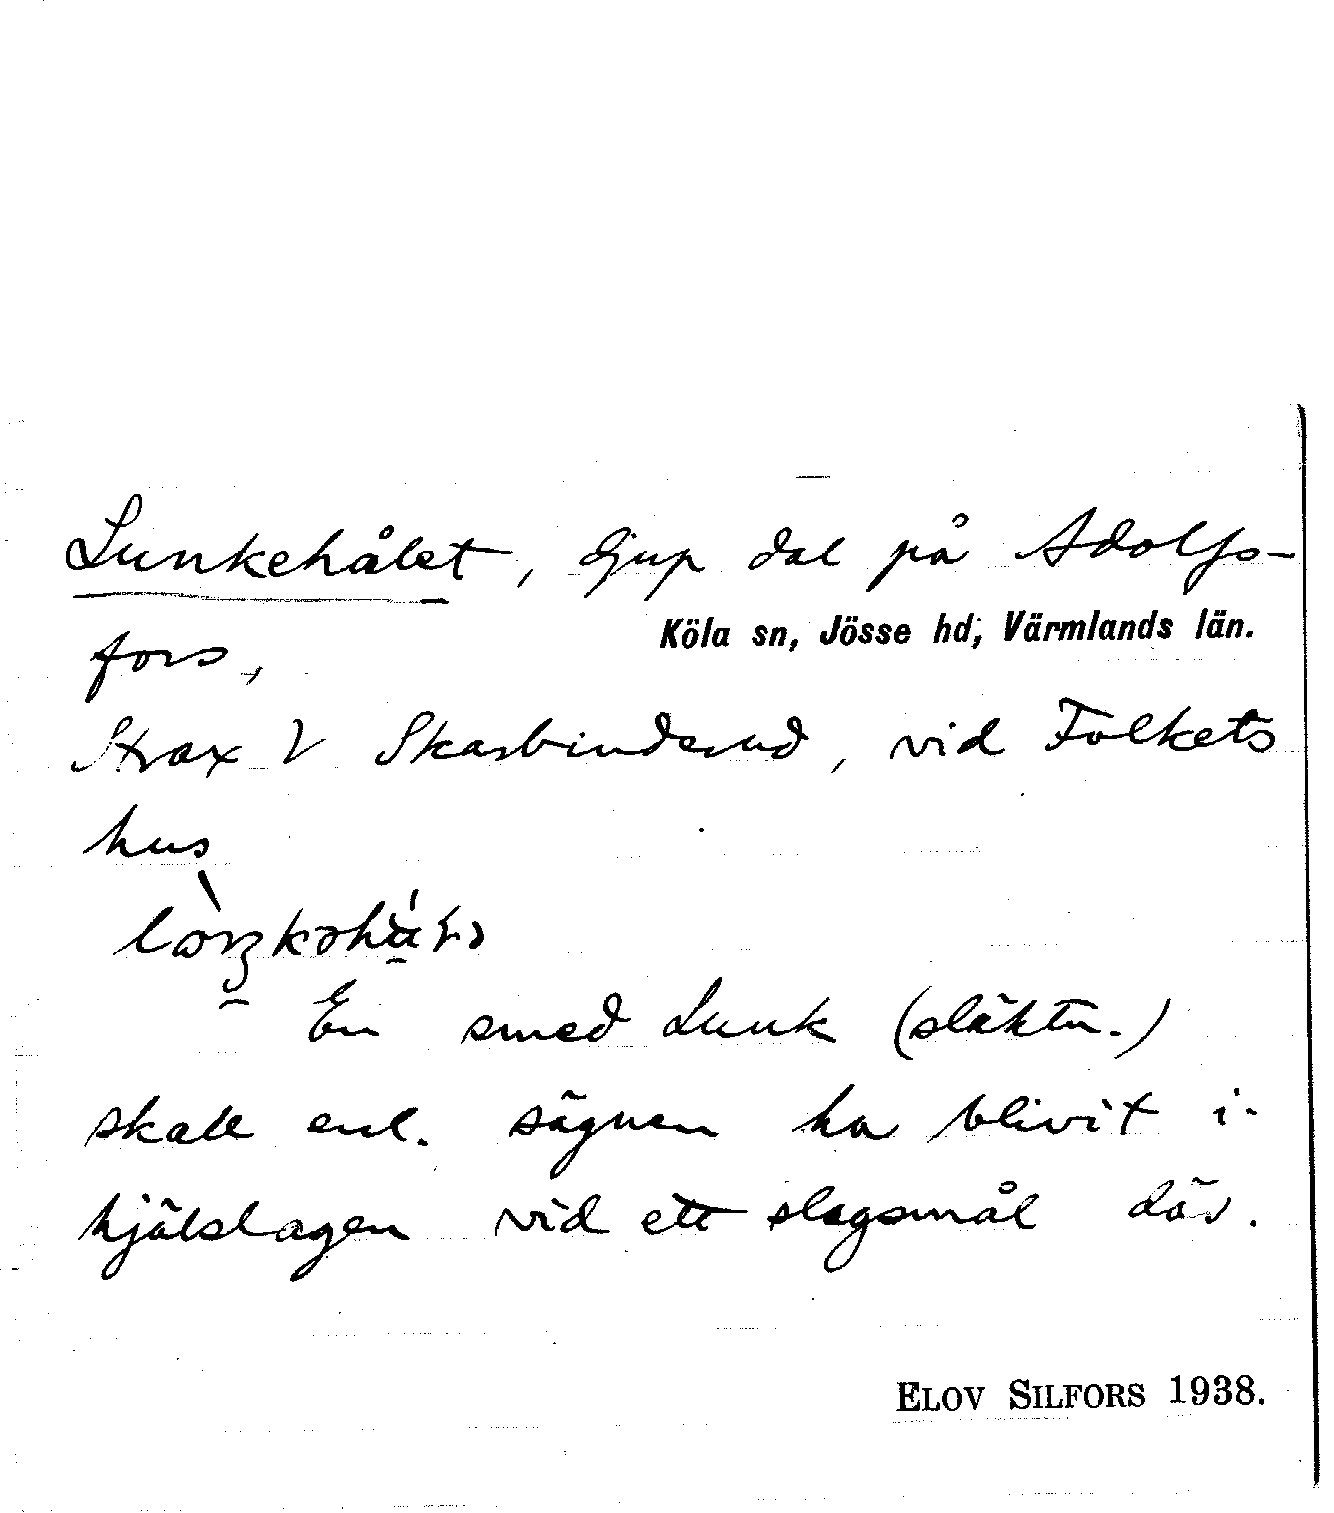 Lunkehålet, djup dal på Adolfs-
Köla sn, Jösse hd, Värmlands län.
fors,
Strax V Skarbinderud, vid Folkets
hus
En smed Lunk (släktn.)
skall enl. sägnen ha blivit i-
hjälslagen vid ett slagsmål där.
ELOV SILFORS 1938.